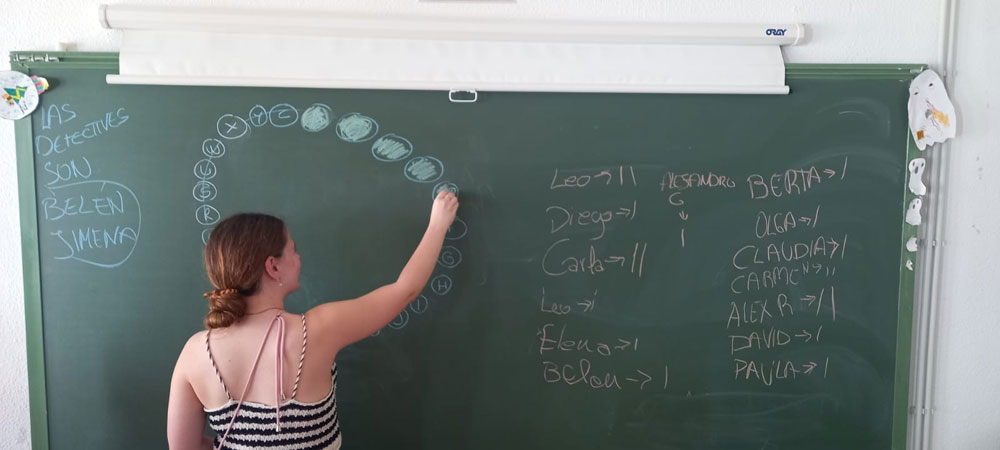 ORAY
LAS
DETECTIVES
SON
BELEN
JIMENA
R
S
U
X
Y
Z
G
H
I
J
Leo → ||
Diego → |
Carla → ||
Leo → |
Elena → |
Belen → |
ALESANDRO
G
↓
|
BERTA → |
OLGA → |
CLAUDIA → |
CARMEN → ||
ALEX R → ||
DAVID → |
PAULA → |